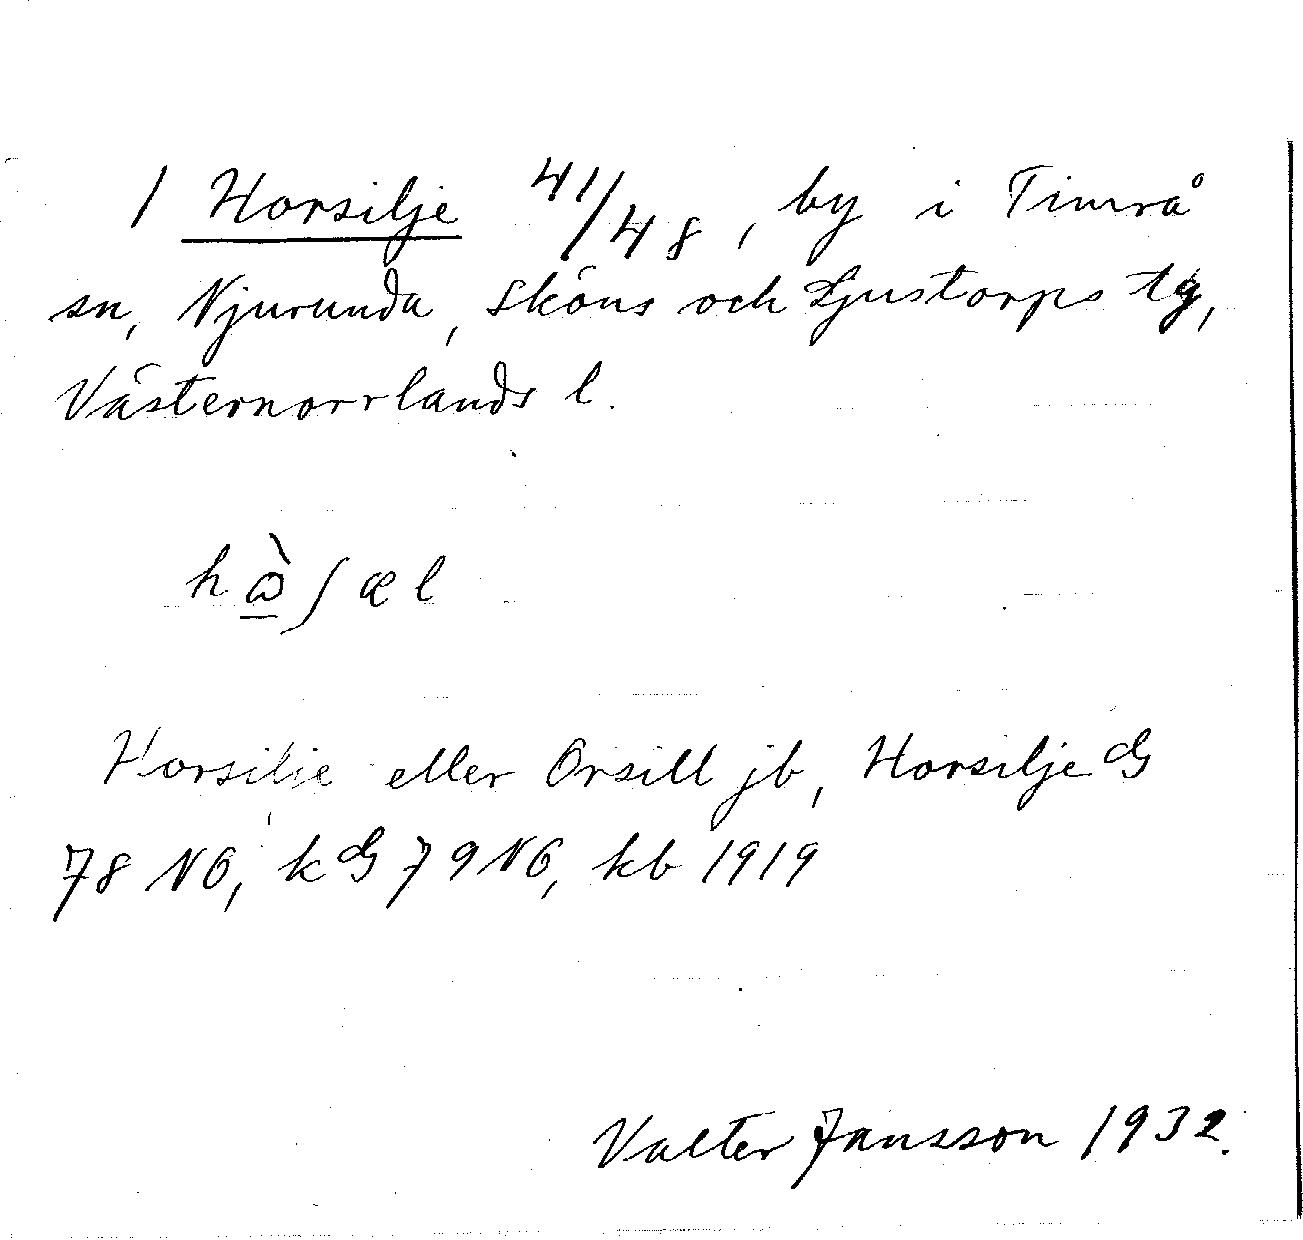 1 Horsilje 41/48, by i Timrå
sn, Njurunda, Sköns och Ljustorps tg,
Västernorrlands l.
Horsilie eller Orsill jb, Horsilje GS
78 NO, k GS 79 NO, kb 1919
Valter Jansson 1932.